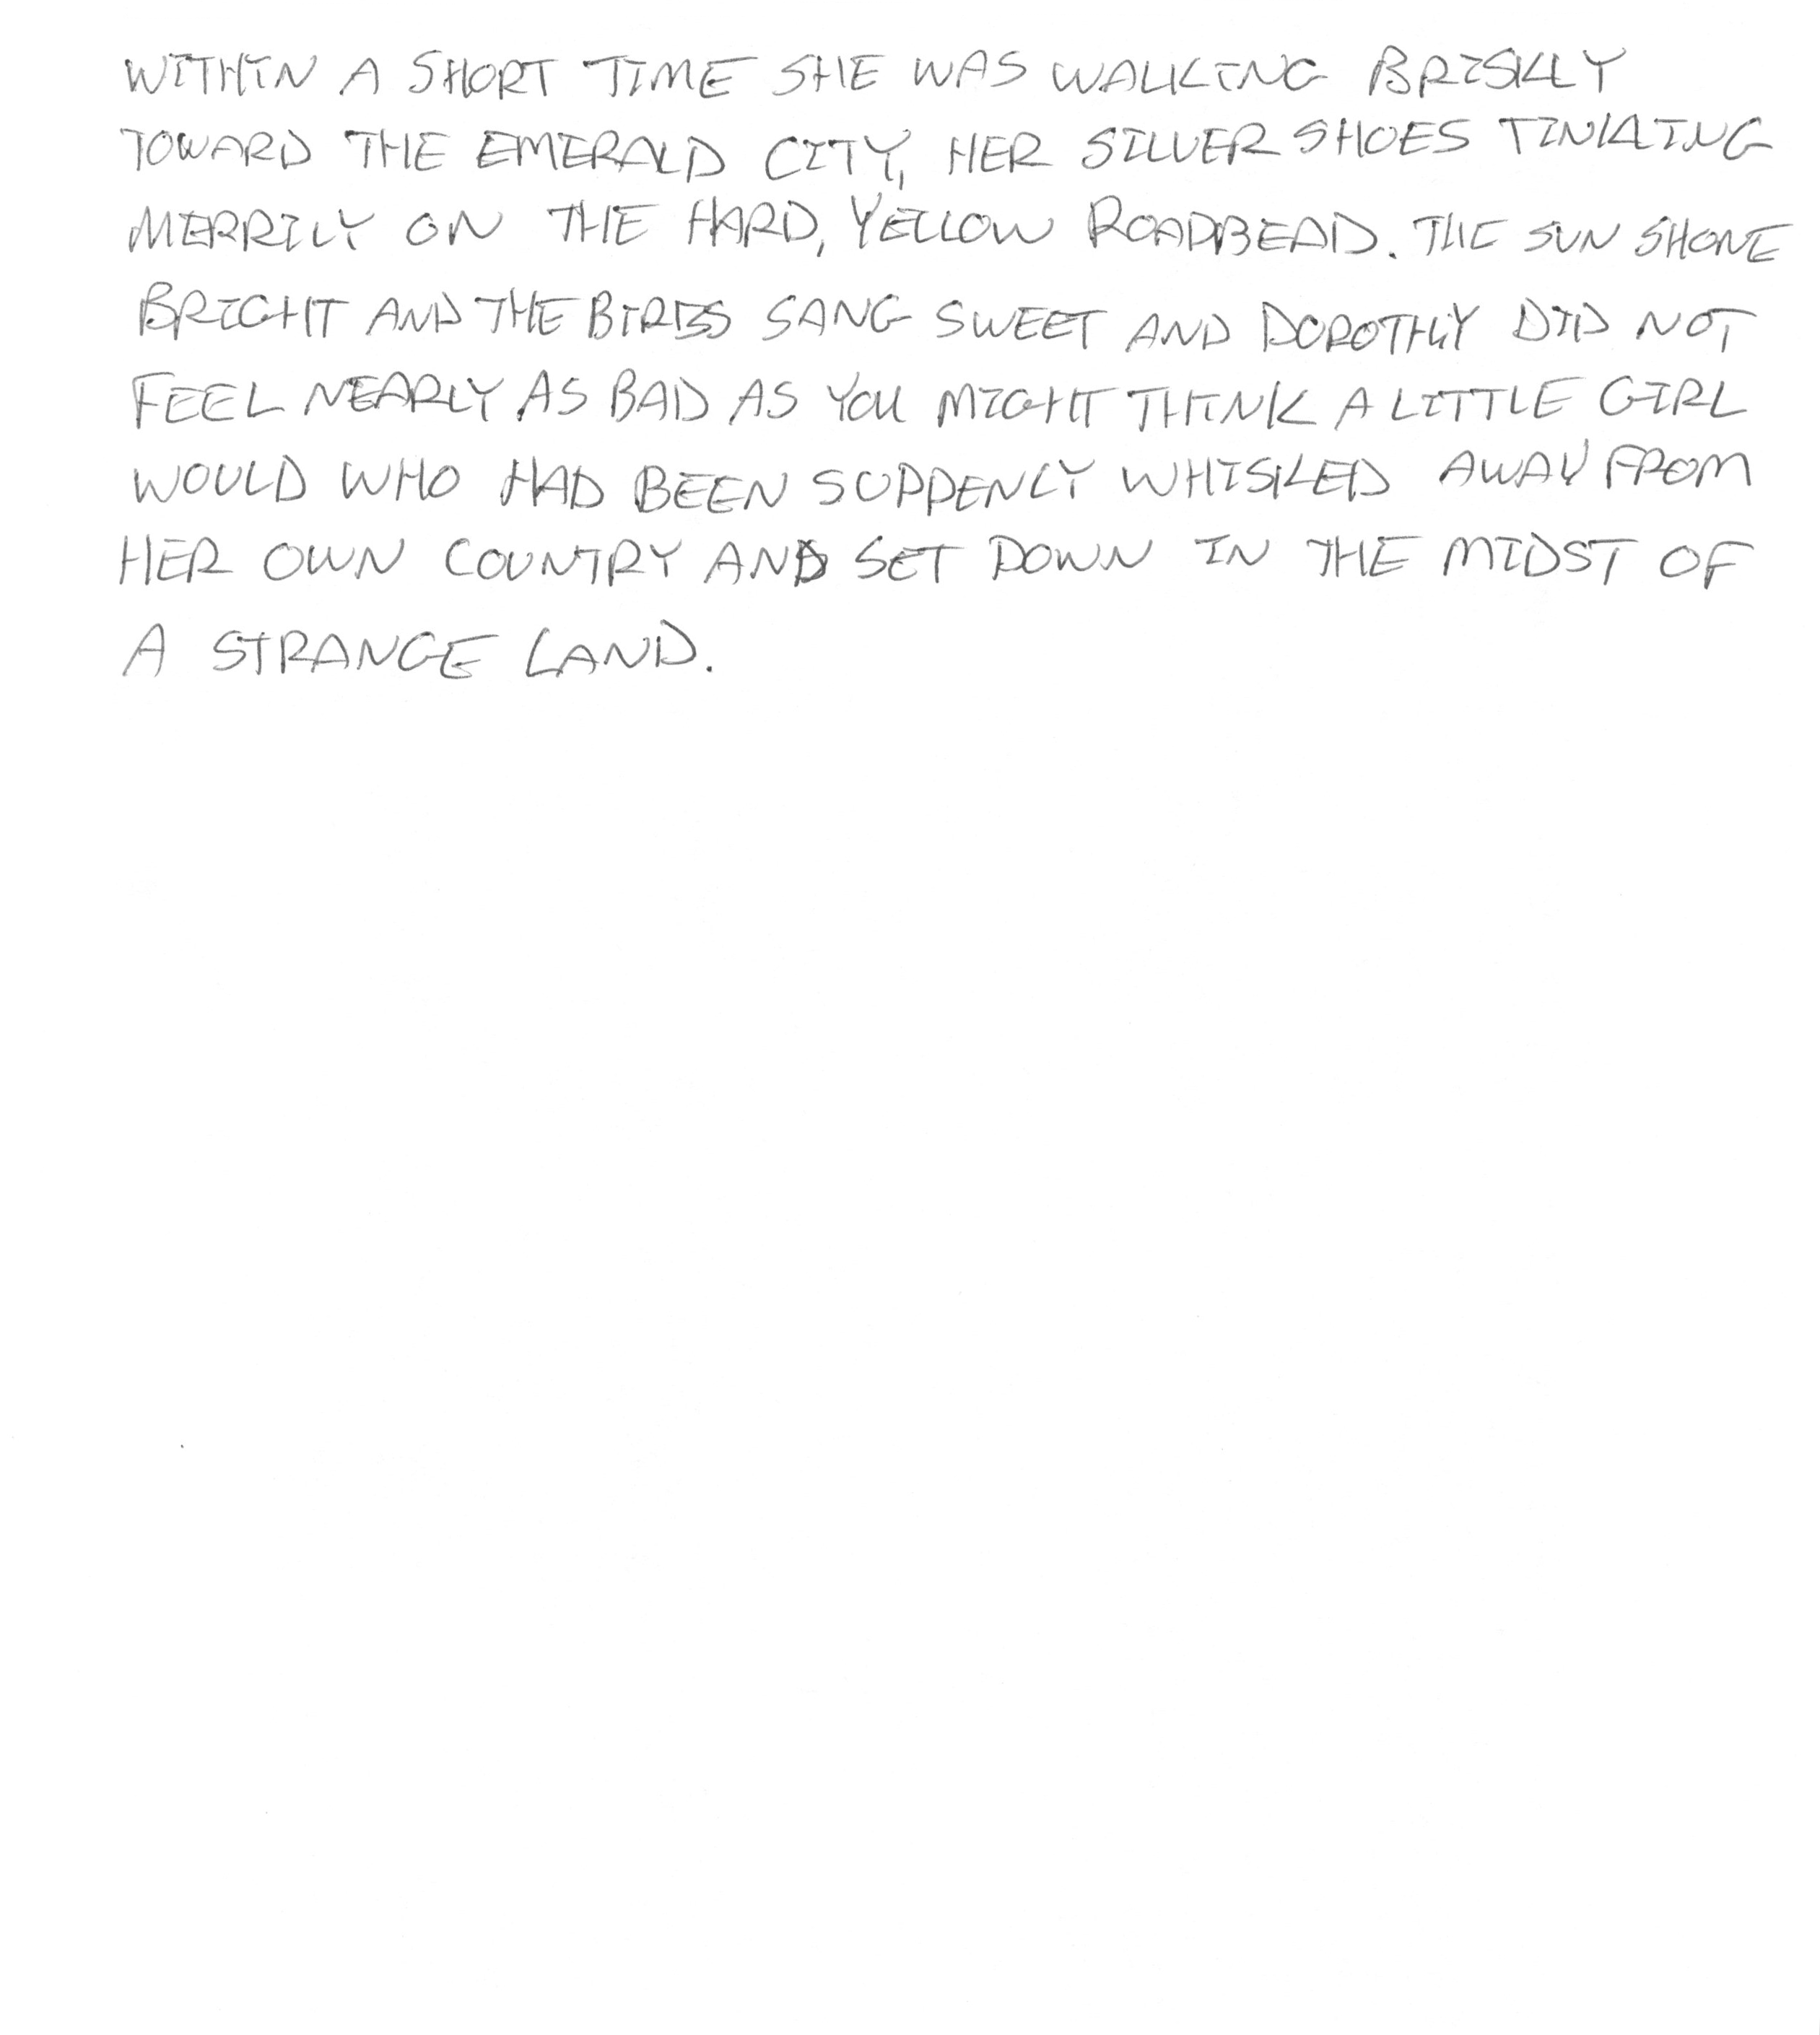 WITHIN A SHORT TIME SHE WAS WALKING BRISKLY
TOWARD THE EMERALD CITY, HER SILVER SHOES TINKLING
MERRILY ON THE HARD, YELLOW ROADBEAD. THE SUN SHONE
BRIGHT AND THE BIRDS SANG SWEET AND DOROTHY DID NOT
FEEL NEARLY AS BAD AS YOU MIGHT THINK A LITTLE GIRL
WOULD WHO HAD BEEN SUDDENLY WHISKED AWAY FROM
HER OWN COUNTRY AND SET DOWN IN THE MIDST OF
A STRANGE LAND.